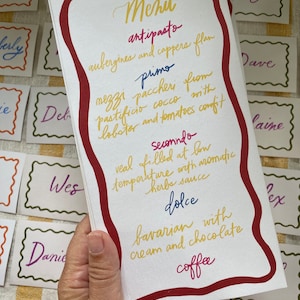 Menu
antipasto
aubergines and peppers flan
primo
mezzi paccheri from
pastificio cocco with
lobster and tomatoes confit
secondo
veal filled at low
temperature with aromatic
herbs sauce
dolce
bavarian with
cream and chocolate
coffee
Dave
Wes